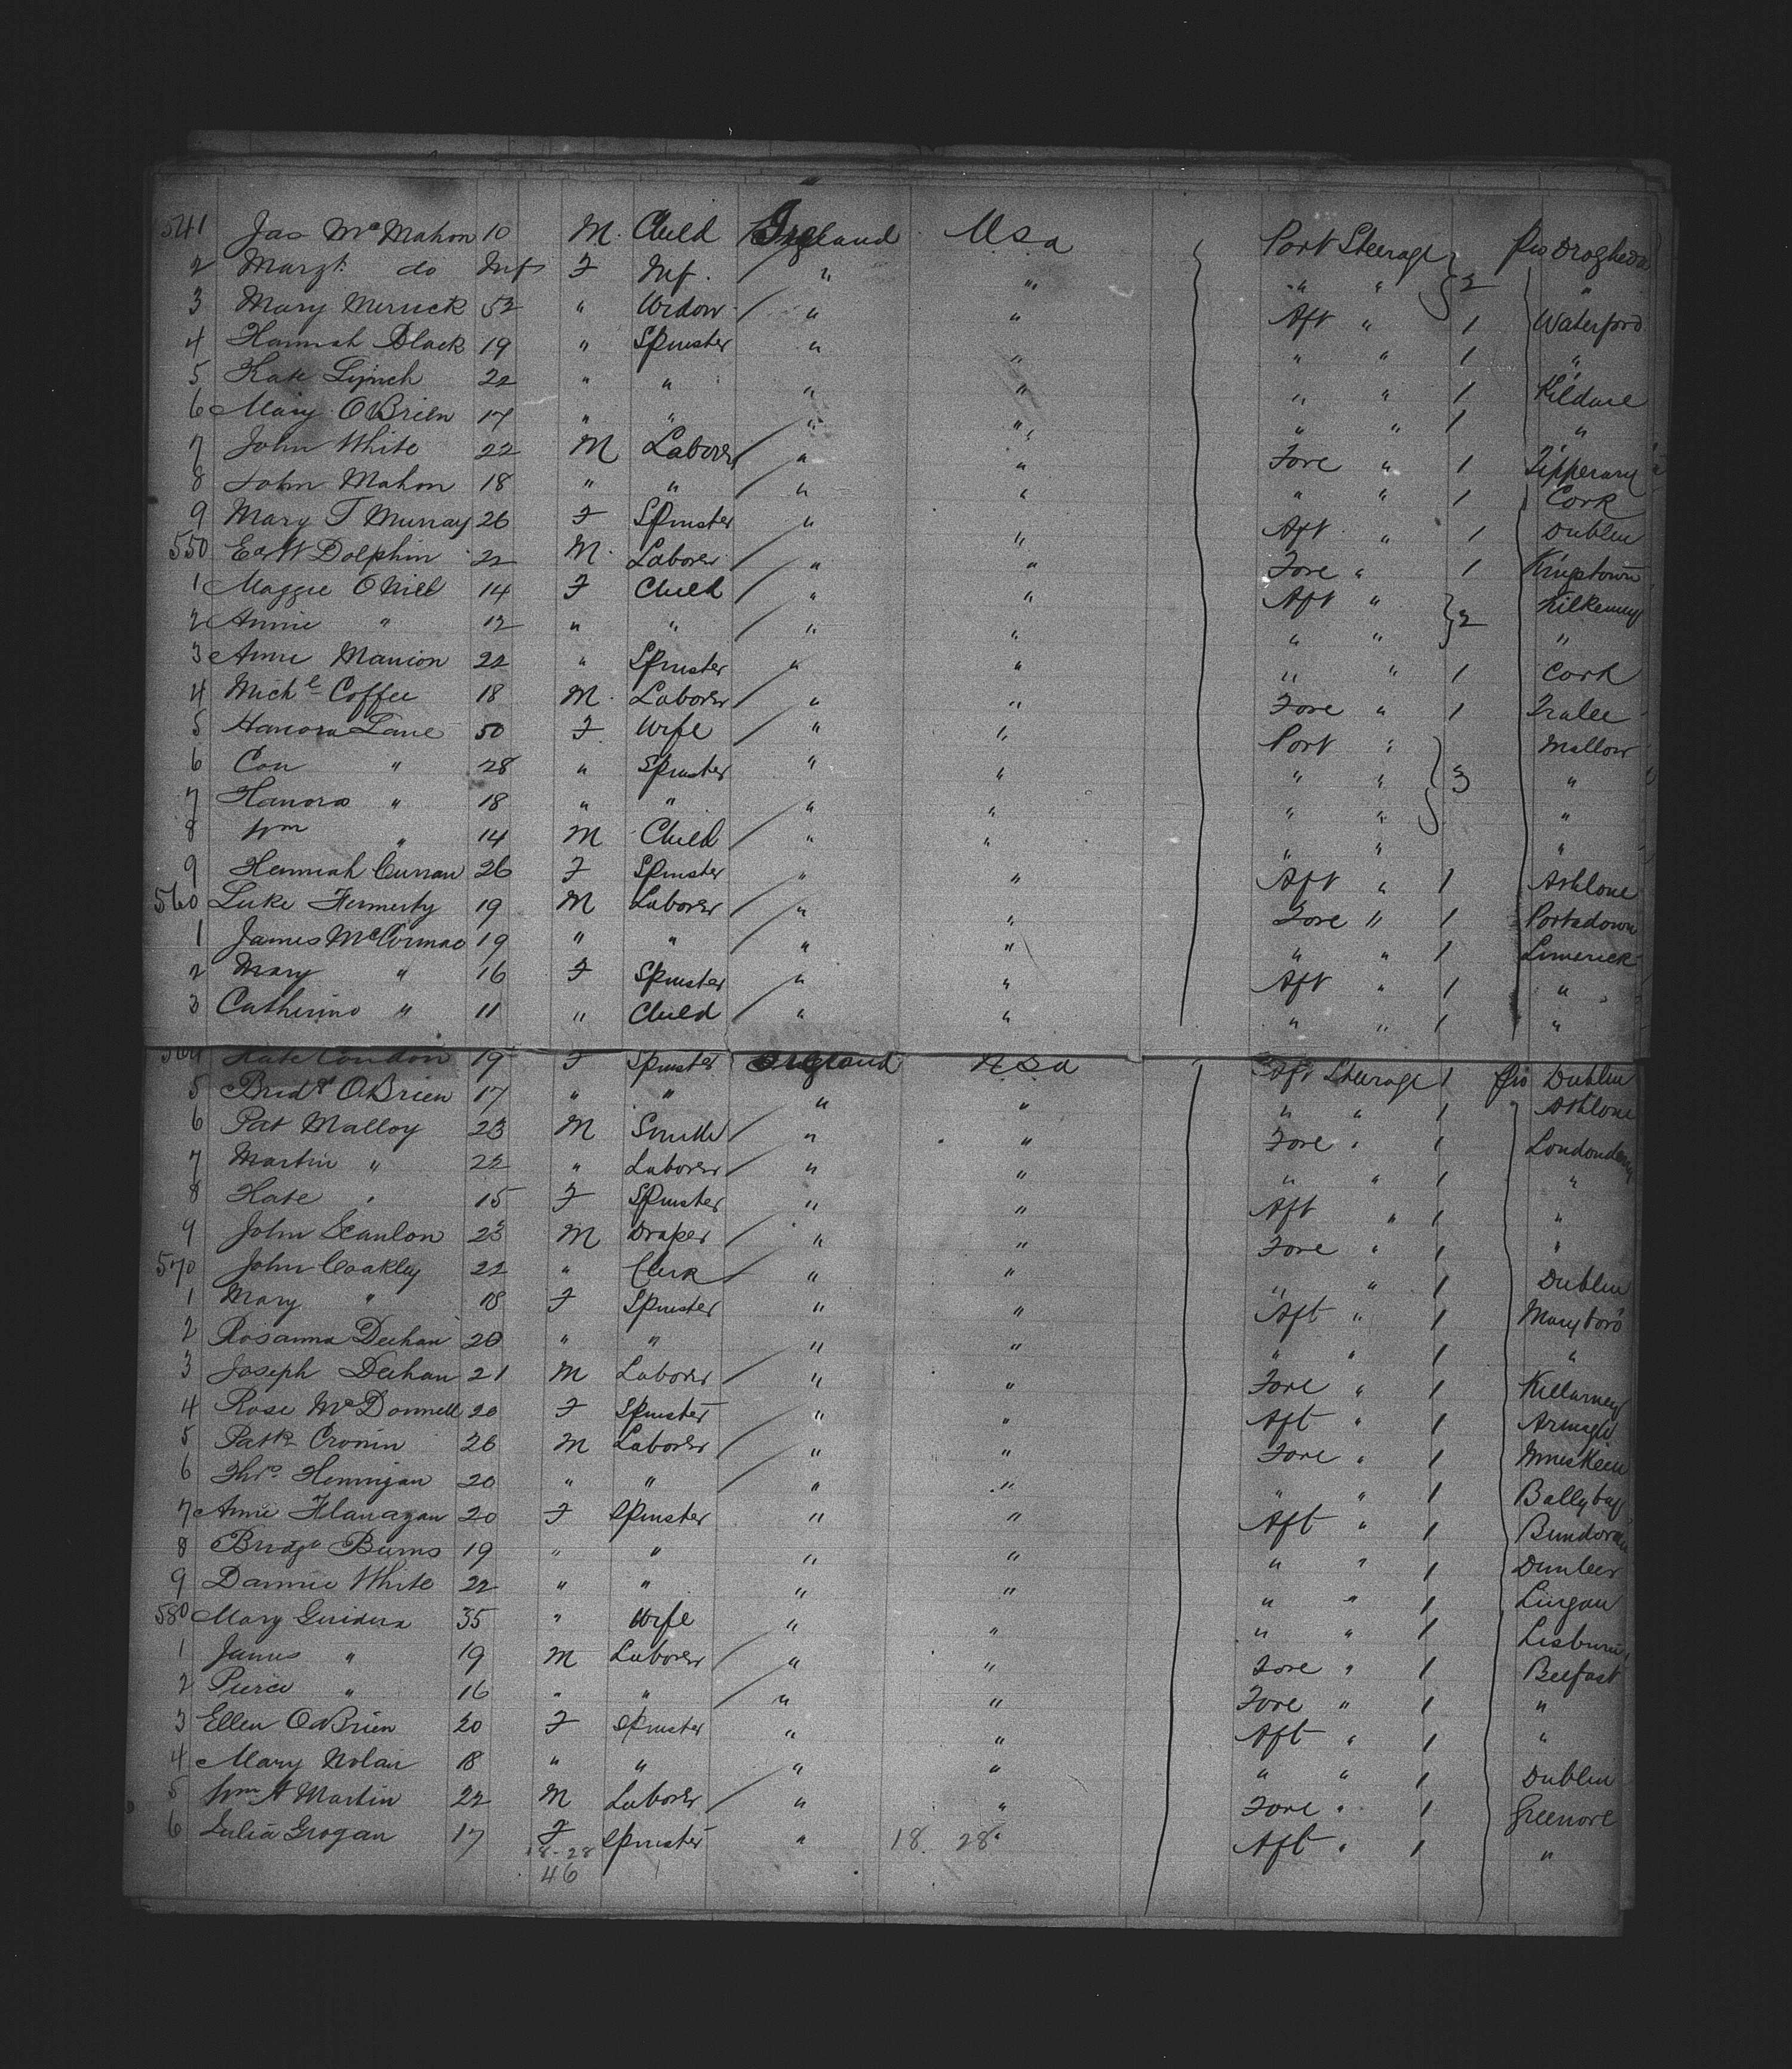 541 Jas McMahon 10 M. Child Ireland Usa Port Steerage fro Drogheda
2 Margt. do Inf F Inf. " " " " } 2 "
3 Mary Merrick 52 " Widow " " Aft " 1 Waterford
4 Hannah Black 19 " Spinster " " " " 1 "
5 Kate Lynch 22 " " " " " " 1 Kildare
6 Mary OBrien 17 " " " " " " 1 "
7 John White 22 M Laborer " " Fore " 1 Tipperary
8 John Mahon 18 " " " " " " 1 Cork
9 Mary T Murray 26 F Spinster " " Aft " 1 Dublin
550 Edwd Dolphin 22 M. Laborer " " Fore " 1 Kingstown
1 Maggie ONeill 14 F Child " " Aft " Kilkenny
2 Annie " 12 " " " " " " } 2 "
3 Annie Manion 22 " Spinster " " " " 1 Cork
4 Michl Coffee 18 M. Laborer " " Fore " 1 Tralee
5 Hanora Lane 50 F Wife " " Port " Mallow
6 Con " 28 " Spinster " " " " } 3 "
7 Hanora " 18 " " " " " " "
8 Wm " 14 M Child " " " " "
9 Hannah Curran 26 F Spinster " " Aft " 1 Athlone
560 Luke Finnerty 19 M Laborer " " Fore " 1 Portadown
1 James McCormac 19 " " " " " " 1 Limerick
2 Mary " 16 F Spinster " " Aft " 1 "
3 Catherine " 11 " Child " " " " 1 "
564 Kate Condon 19 F Spinster Ireland Usa Aft Steerage 1 fro Dublin
5 Bridgt OBrien 17 " " " " " " 1 Athlone
6 Pat Malloy 23 M Smith " " Fore " 1 Londonderry
7 Martin " 22 " Laborer " " " " 1 "
8 Kate " 15 F Spinster " " Aft " 1 "
9 John Scanlon 23 M Draper " " Fore " 1 "
570 John Coakley 22 " Clerk " " " " 1 Dublin
1 Mary " 18 F Spinster " " Aft " 1 Maryboro
2 Rosanna Deehan 20 " " " " " " 1 "
3 Joseph Deehan 21 M Laborer " " Fore " 1 Killarney
4 Rose McDonnell 20 F Spinster " " Aft " 1 Armagh
5 Patk Cronin 26 M Laborer " " Fore " 1 Inniskeen
6 Thos. Hennigan 20 " " " " " " 1 Ballybay
7 Annie Flanagan 20 F Spinster " " Aft " 1 Bundoran
8 Bridgt Burns 19 " " " " " " 1 Dunleer
9 Dannie White 22 " " " " " " 1 Lurgan
580 Mary Guidera 35 " Wife " " " " 1 Lisburn
1 James " 19 M Laborer " " Fore " 1 Belfast
2 Pierce " 16 " " " " Fore " 1 "
3 Ellen OBrien 20 F Spinster " " Aft " 1 "
4 Mary Nolan 18 " " " " " " 1 Dublin
5 Wm H Martin 22 M Laborer " " Fore " 1 Greenore
6 Julia Grogan 17 F Spinster " 18 28 Aft " 1 "
18-28
46